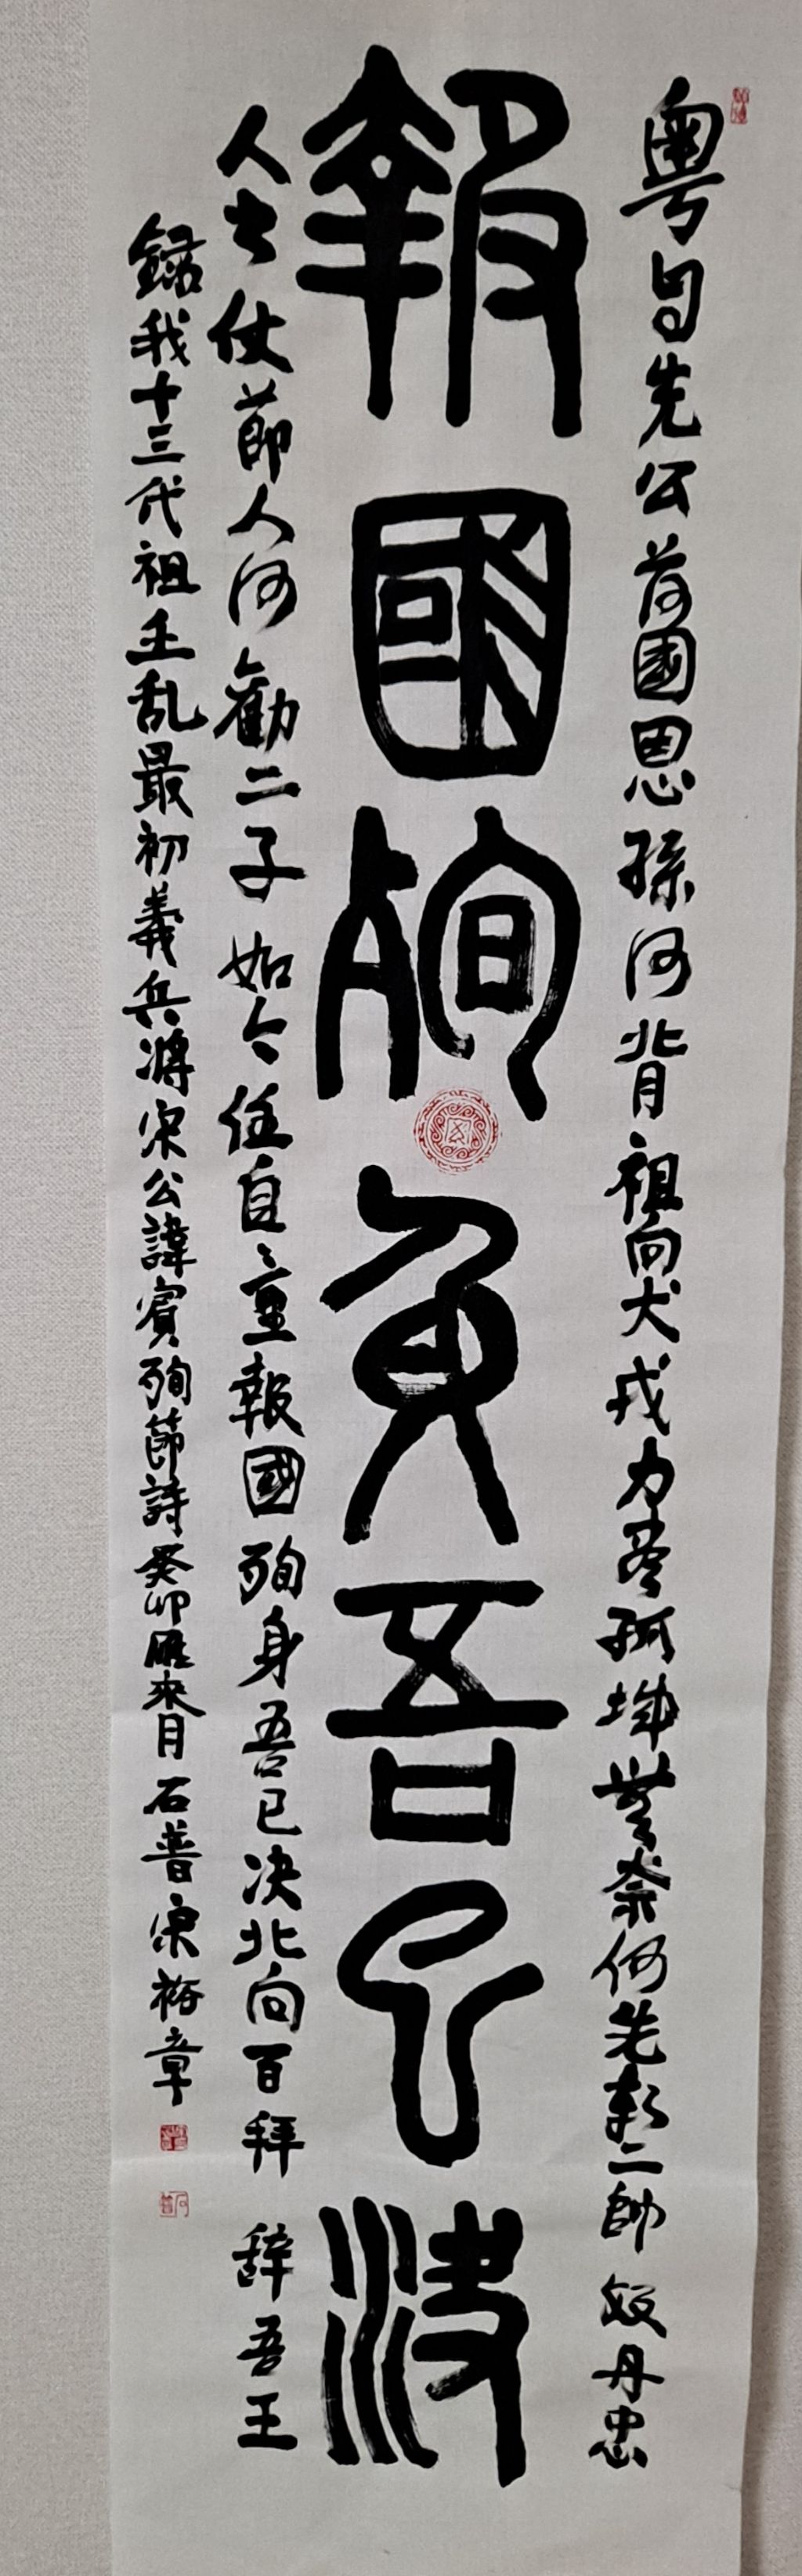 粤自先公荷國恩孫何背祖向犬戎力盡孤城無奈何先斬二帥效丹忠
報國殉身吾已決
人去仗節人何勸二子如今任自重報國殉身吾已决北向百拜辞吾王
錄我十三代祖壬乱最初義兵將宋公諱賓殉節詩癸卯雁來月石普宋裕章